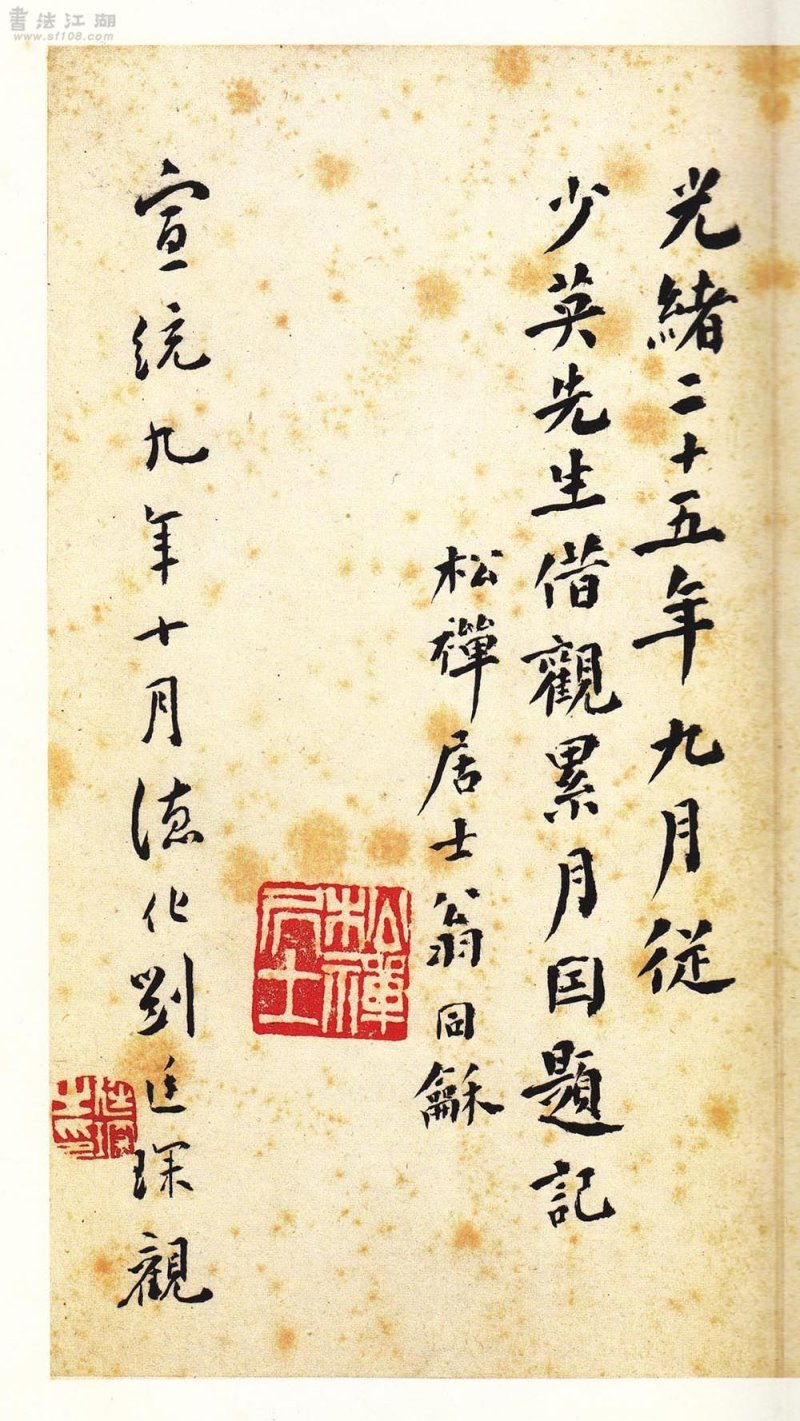 書法江湖
www.sf108.com
光緒二十五年九月從
少英先生借觀累月因題記
松禪居士翁同龢
松禪居士
宣統九年十月德化劉廷琛觀